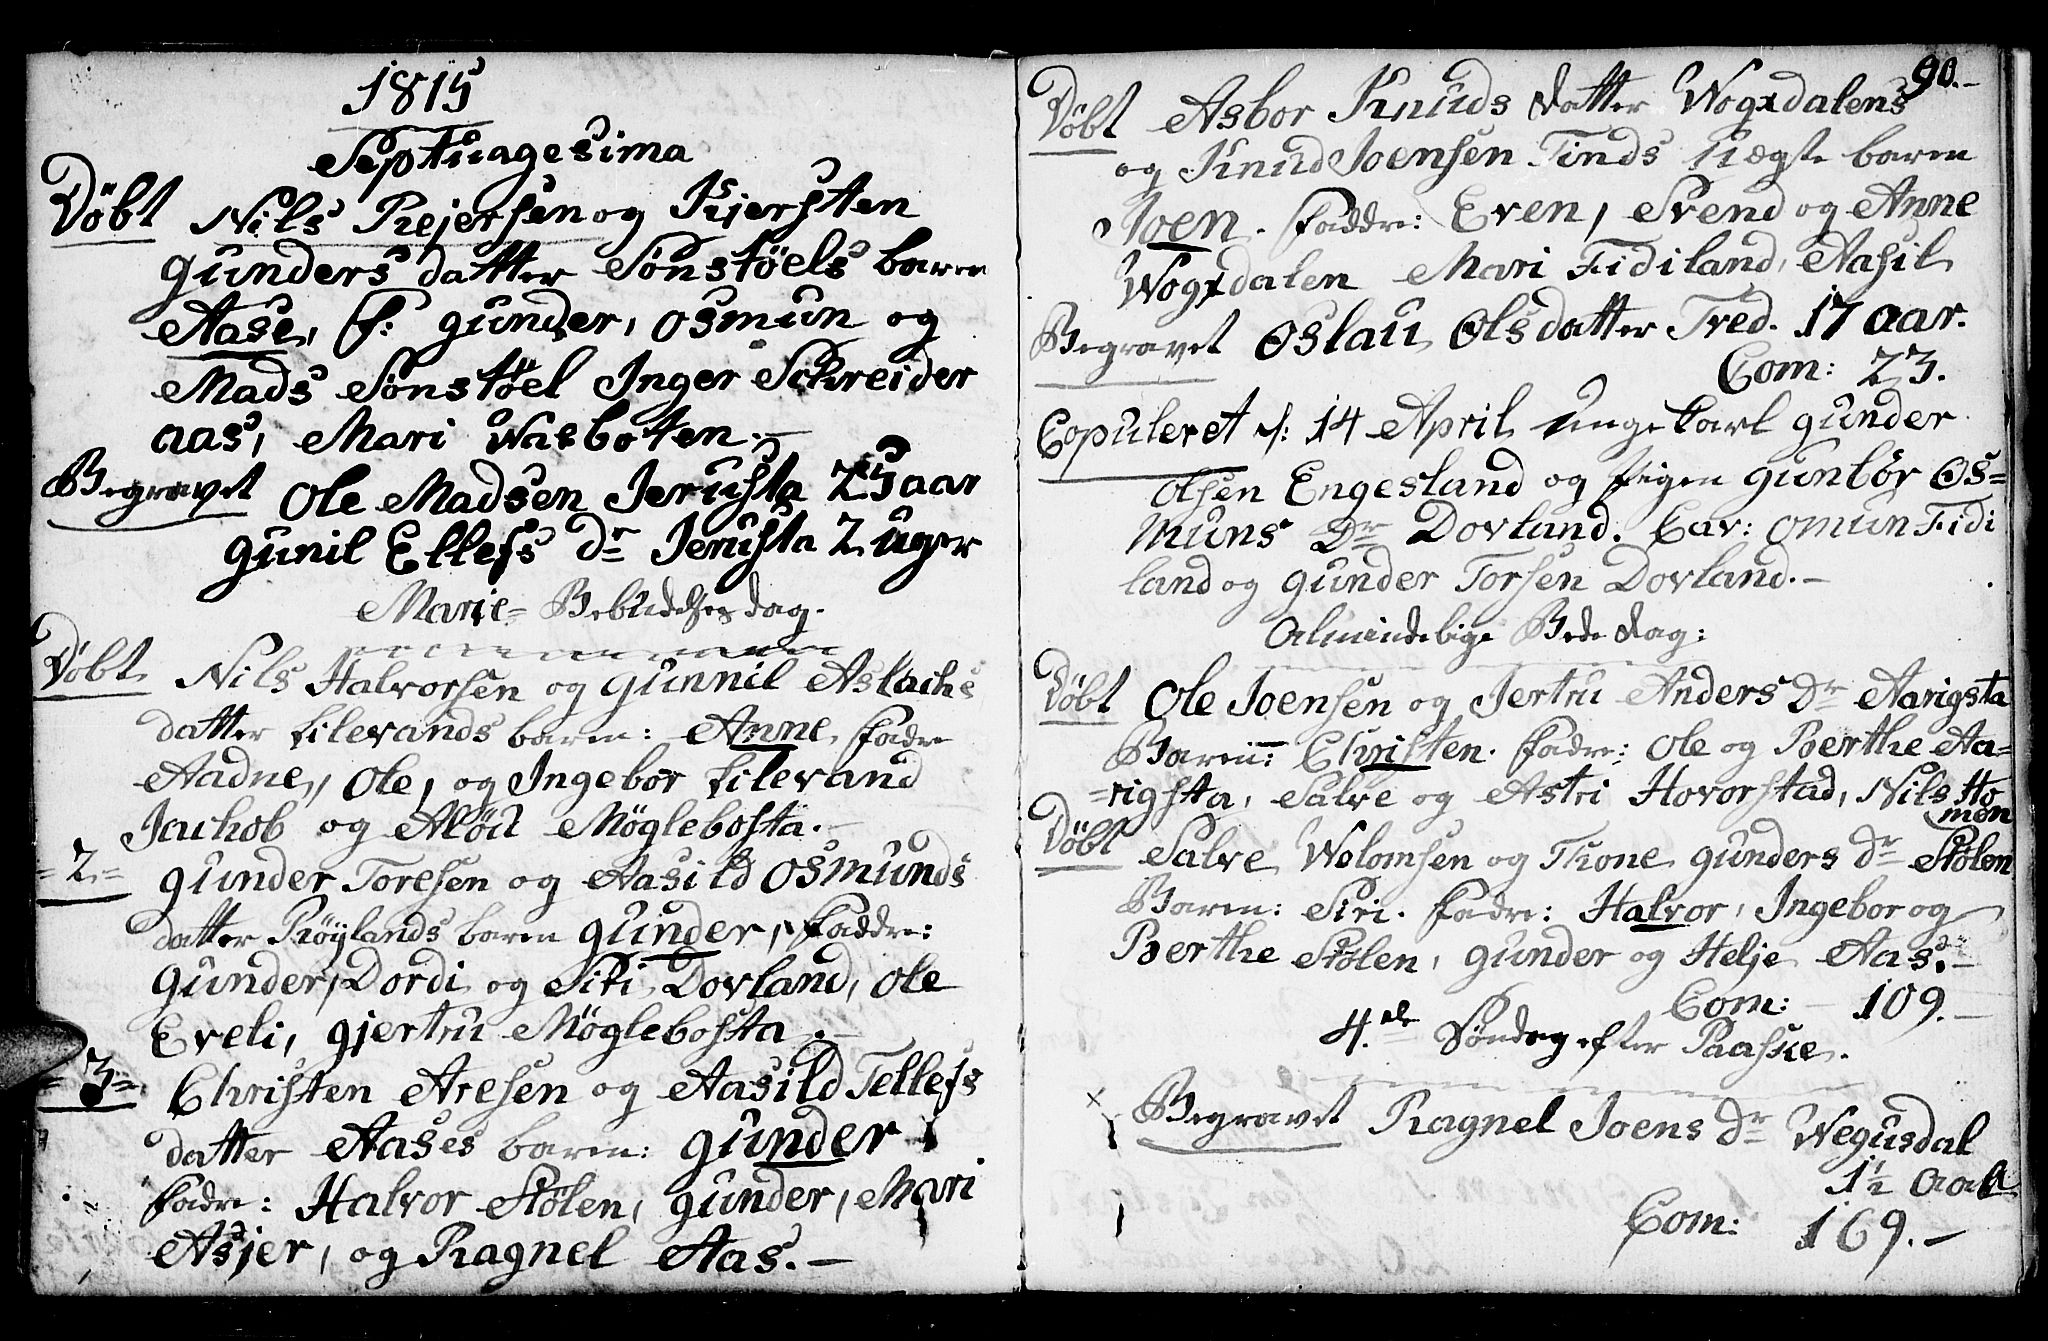 1815
Septuagesima
Döbt Nils Rejersen og Kjersten
gunders datter Sønstöels baren
Aase, f: gunder, osmun og
Mads Sønstöel Inger Schreider
aas, Mari Wasboten.-
Begravet Ole Madsen Jerusta 25 aar
gunil Ellefs Dr Jerusta 2 uger
Marie= Bebudelses dag.
Döbt Nils Halvorsen og gunnil Aslachs
datter Lilevands baren: Anne, fadre
Aadne, Ole, og Ingebor Lilevand
Jachob og Alöd Möglebosta.-
=2.= gunder Toresen og Aasild Osmunds
datter Röylands baren gunder, faddre:
gunder, Dordi og Siri Dovland, Ole
Eveli, gjertru Möglebosta.-
=3= Christen Aresen og Aasild Tellefs
datter Aases baren: gunder
fadre: Halvor Stölen, gunder, Mari
Asjer, og Ragnel Aas.-
90.-
Döbt Asbor Knuds datter Wogxdalens
og Knud Joensen Tinds Uægte baren
Joen. faddre: Even, Svend og Anne
Wogxdalen Mari Fidiland, Aasil
Begravet Oslau Olsdatter Tved. 17 aar.
Com: 23.
Copuleret d: 14 April unge karl gunder
Olsen Engesland og pigen gunbör Os=
muns Dr Dovland. Cav: omun Fidi
land og gunder Torsen Dovland.-
Almindelige Bede dag:
Döbt Ole Joensen og Jertru Anders Dr Aarigsta
Baren: Christen. fadre: Ole og Berthe Aa=
=rigsta, Salve og Astri Hovorstad, Nils Ho
men
Döbt Salve Wolomsen og Thone gunders Dr Stölen
Baren: Siri. fadre: Halvor, Ingebor og
Berthe Stölen, gunder og Helje Aas.-
Com: - 109.-
4.de Söndag efter Paaske.
x Begravet Ragnel Joens Dr Wegusdal
1½ Aar
Com: 169.-